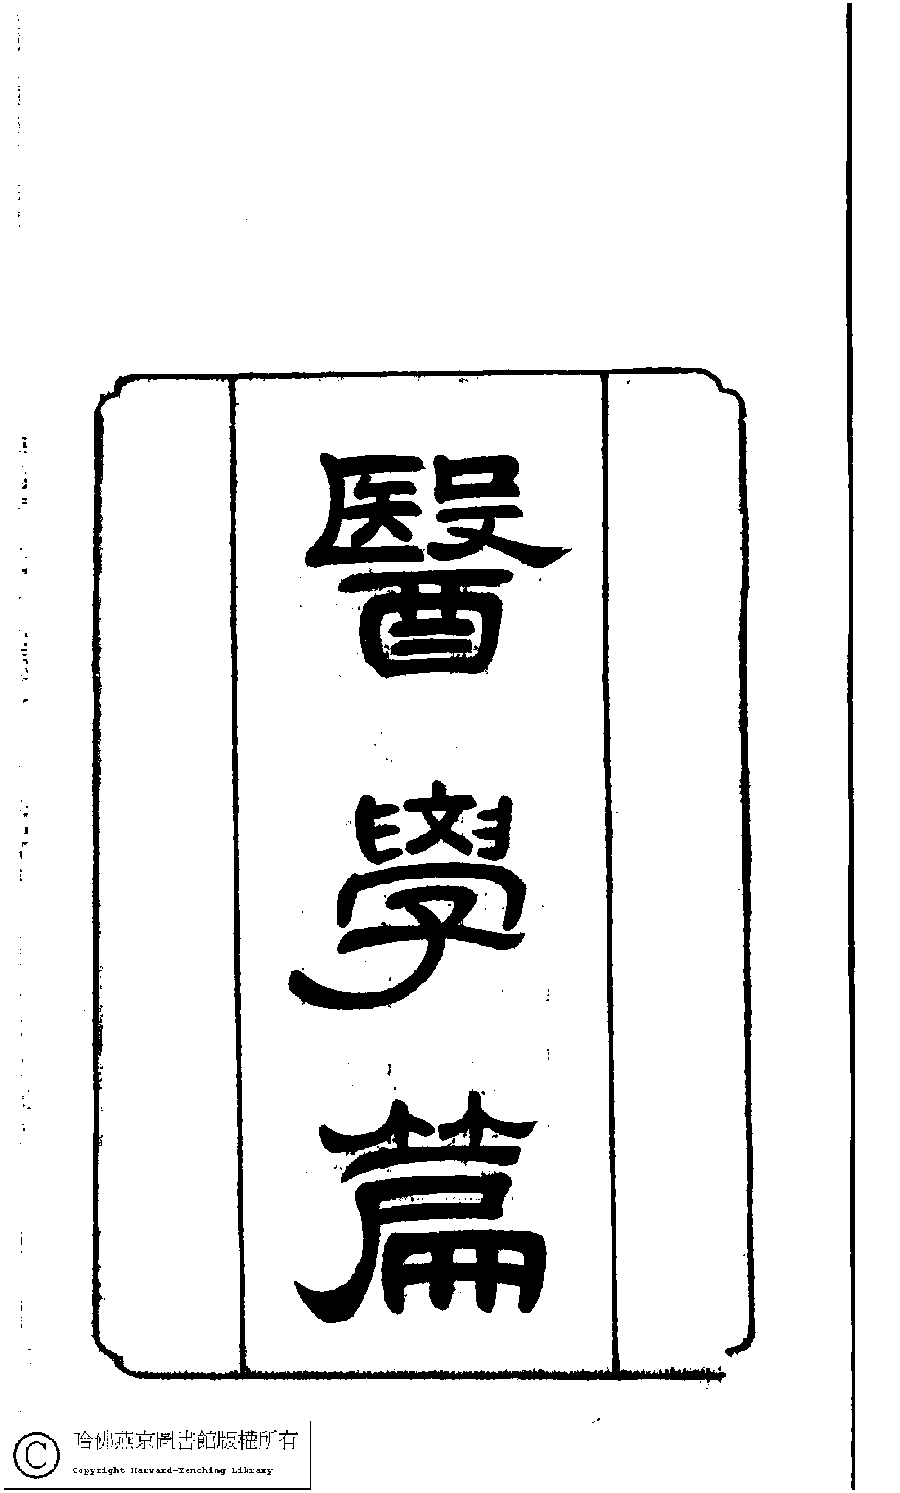 醫學篇
© 哈佛燕京圖書館版權所有
Copyright Harvard-Yenching Library